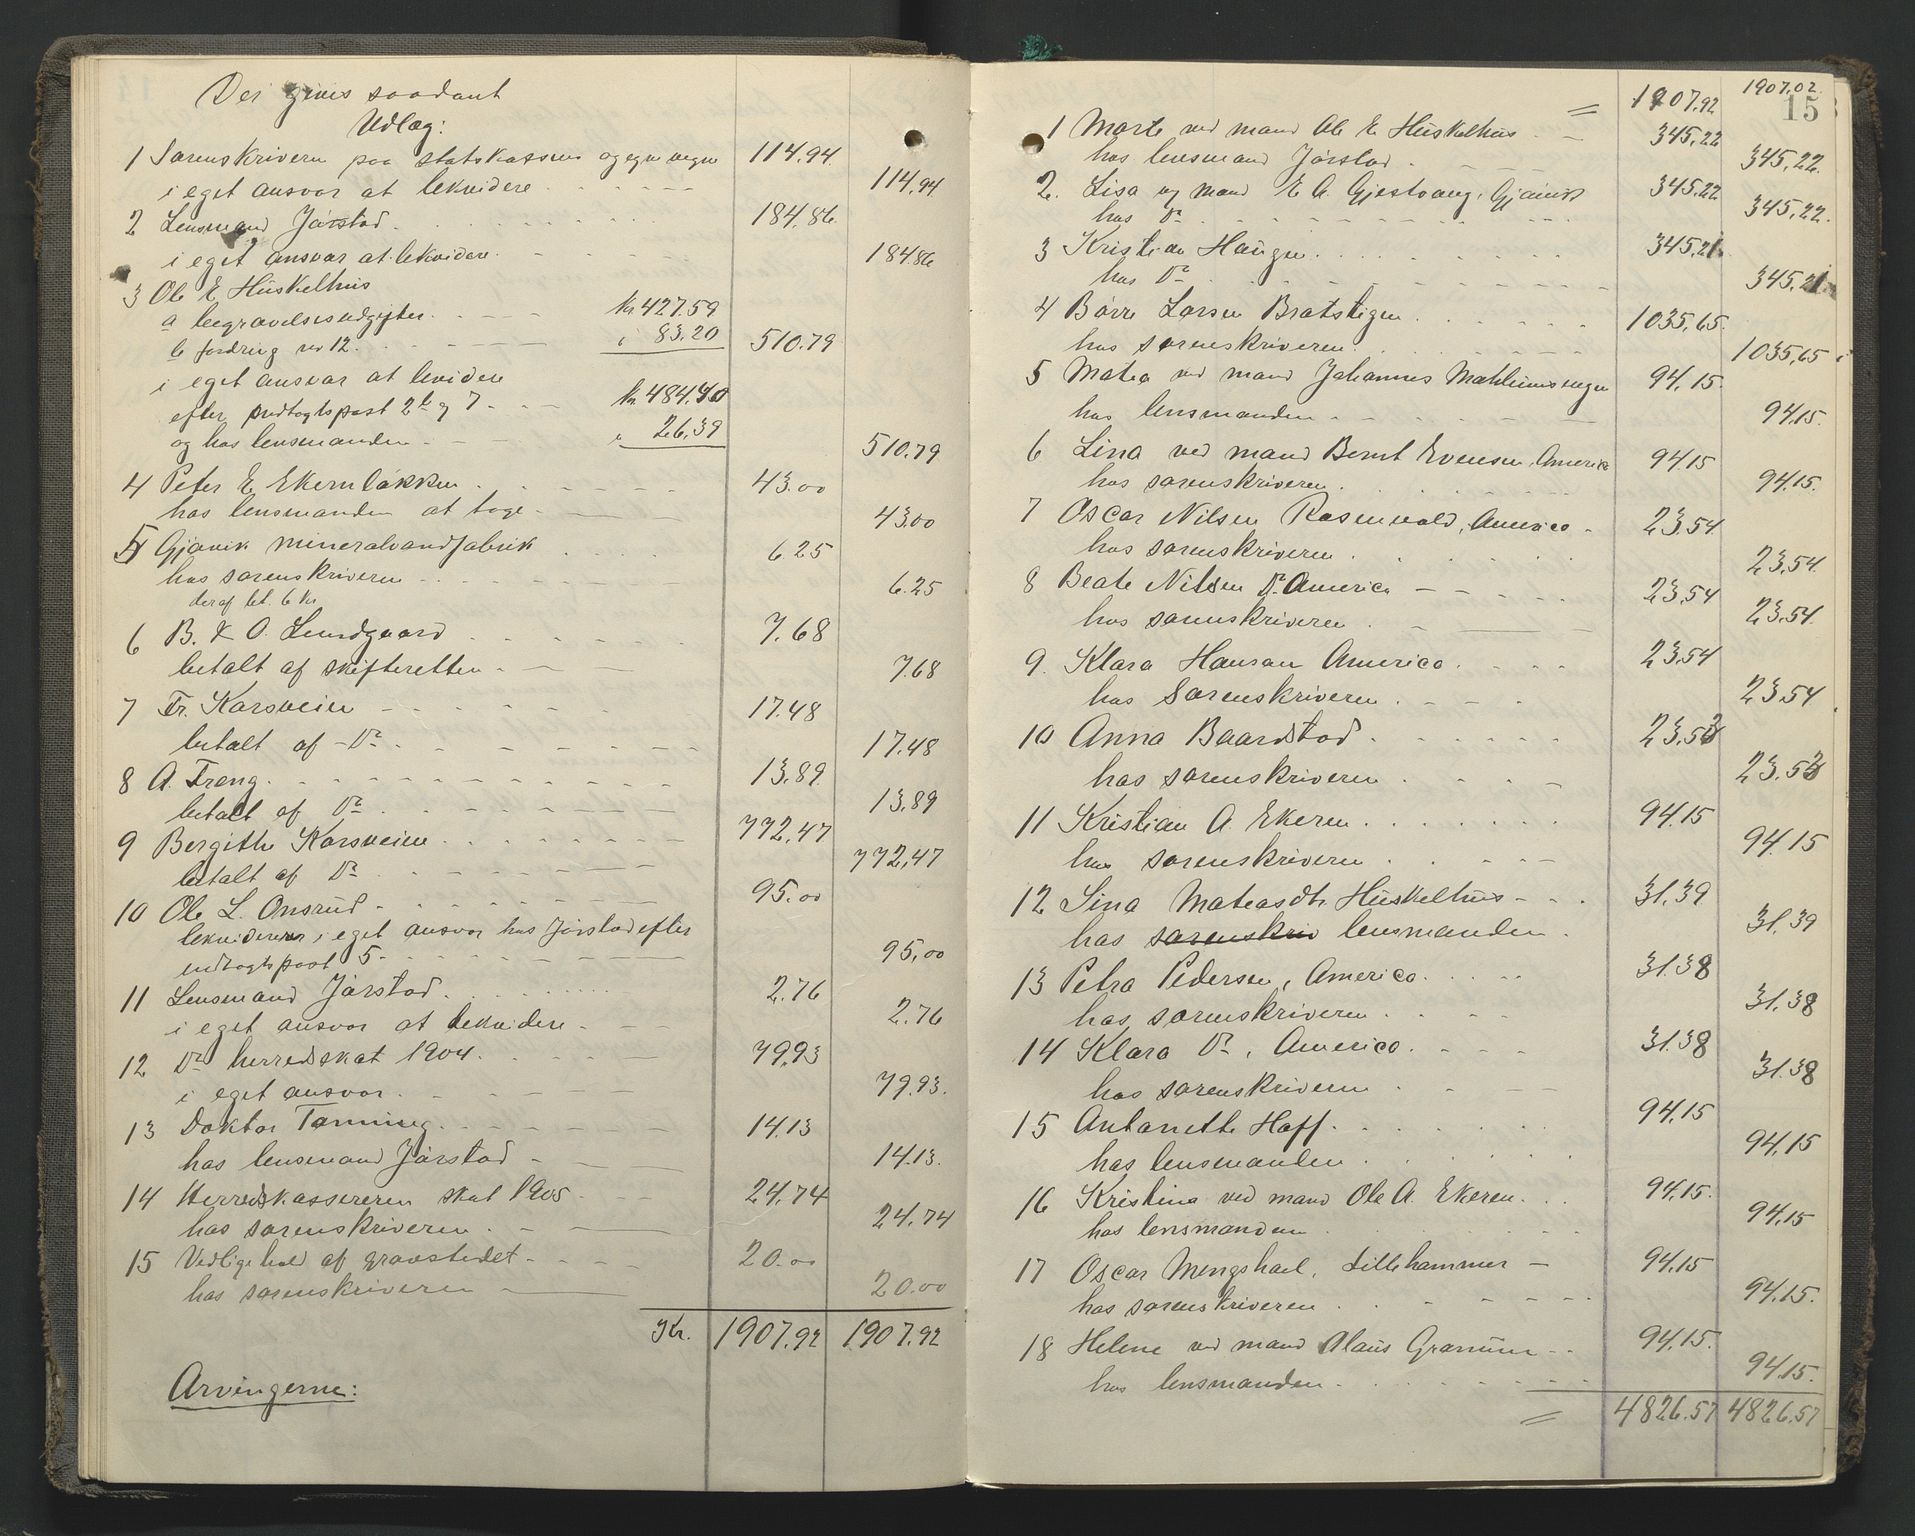 Der gives saadant
Udlæg:
1 Sorenskriveren paa statskassens og egne vegne 114.94
i eget ansvar at lekvidere 114,94
2 Lensmand Jørstad 184,86
i eget ansvar at lekvidere 184.86
3 Ole E Huskelhus
a begravelsesudgifter kr 427.59
b fordring no 12 " 83.20 510.79
i eget ansvar at levidere
efter indtægtspost 2b og 7 kr 484,40
og hos lensmanden " 26,39 510.79
4 Peter E Ekernløkken 43.00
hos lensmanden at tage 43.00
5 Gjøvik mineralvandfabrik 6.25
hos sorenskriveren 6.25
deraf bet. 6 kr
6 B. & O. Lundgaard 7.68
betalt af skifteretten 7.68
7 Fr. Korsveien 17.48
betalt af - Do 17.48
8 A. Træng 13.89
betalt af Do 13,89
9 Bergithe Korsveien 772,47
betalt af Do 772,47
10 Ole L. Onsrud 95.00
lekviderer i eget ansvar hos Jørstad efter
indtægtspost 5 95,00
11 Lensmand Jørstad 2.76
i eget ansvar at lekvidere 2.76
12 Do herredskat 1904 79,93
i eget ansvar 79.93.
13 Doktor Tønning 14.13
hos lensmand Jørstad 14.13.
14 Herredskassereren skat 1905 24,74
hos sorenskriveren 24.74
15 Vedligehold af gravstedet 20.00
hos sorenskriveren 20.00
Kr. 1907.92 1907.92
Arvingerne:
15
= 1907,92 1907,02
1 Marte ved mand Ole E Huskelhus 345,22
hos lensmand Jørstad 345,22.
2. Lisa og mand E A. Gjestvang, Gjøvik 345,22
hos Do 345,22.
3 Kristian Haugen 345,21
hos Do 345,21
4 Børre Larsen Bratstigen 1035,65.
hos sorenskriveren 1035,65
5 Matea ved mand Johannes 94,15.
hos lensmanden 94,15.
6 Lina ved mand Bernt Evensen, Amerika 94,15
hos sorenskriveren 94,15.
7 Oscar Nilsen Rosenvold, America 23,54
hos sorenskriveren 23,54.
8 Beate Nilsen Do America 23,54
hos sorenskriveren 23,54.
9. Klara Hansen America 23,54
hos sorenskriveren 23,54
10 Anna Baardstad 23,53
hos sorenskriveren 23.53
11 Kristian A. Ekeren 94.15
hos sorenskriveren 94.15
12 Lina Mateasdtr Huskelhus 31.39
hos sorenskriv lensmanden 31,39
13 Petra Pedersen, America 31.38
hos sorenskriveren 31,38
14 Klara Do, America 31.38
hos sorenskriveren 31.38
15 Antonette Hoff 94,15
hos lensmanden 94,15
16 Kristine ved mand Ole A. Ekeren 94,15.
hos lensmanden 94,15
17 Oscar Mengshoel, Lillehammer 94,15
hos sorenskriveren 94,15.
18 Helene ved mand Olaus Granum 94,15.
hos lensmanden 94,15.
= 4826.57 4826.57